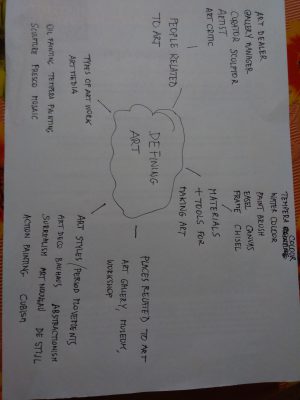 ART DEALER
GALLERY MANAGER
CURATOR SCULPTOR
ARTIST
ART CRITIC
PEOPLE RELATED
TO ART
COLOUR
TEMPERA
WATER COLOUR
PAINT BRUSH
EASEL CANVAS
FRAME CHISEL
MATERIALS
+ TOOLS FOR
MAKING ART
DEFINING
ART
TYPES OF ART WORK
ART MEDIA
OIL PAINTING TEMPERA PAINTING
SCULPTURE FRESCO MOSAIC
PLACES RELATED TO ART
ART GALLERY, MUSEUM,
WORKSHOP
ART STYLES/PERIOD MOVEMENTS
ART DECO BAUHAUS ABSTRACTIONISM
SURREALISM ART NOUVEAU DE STIJL
ACTION PAINTING CUBISM